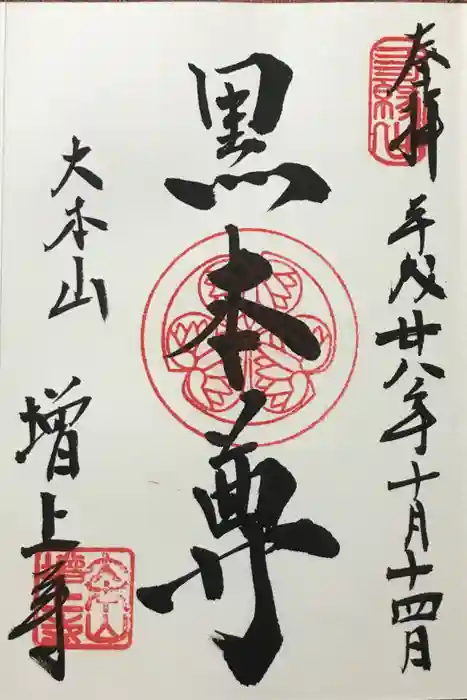 奉拝
平成廿八年十月十四日
黒本尊
大本山
増上寺